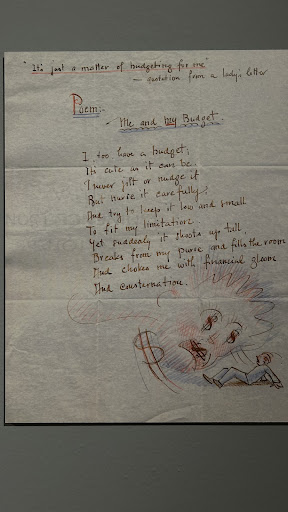 "It's just a matter of budgeting for me"
— quotation from a lady's letter
Poem:-
- Me and my Budget.
I, too have a budget;
It's cute as it can be.
I never jilt or nudge it
But nurse it carefully;
And try to keep it low and small
To fit my limitation
Yet suddenly it shoots up tall,
Breaks from my purse and fills the room
And chokes me with financial gloom
And consternation.